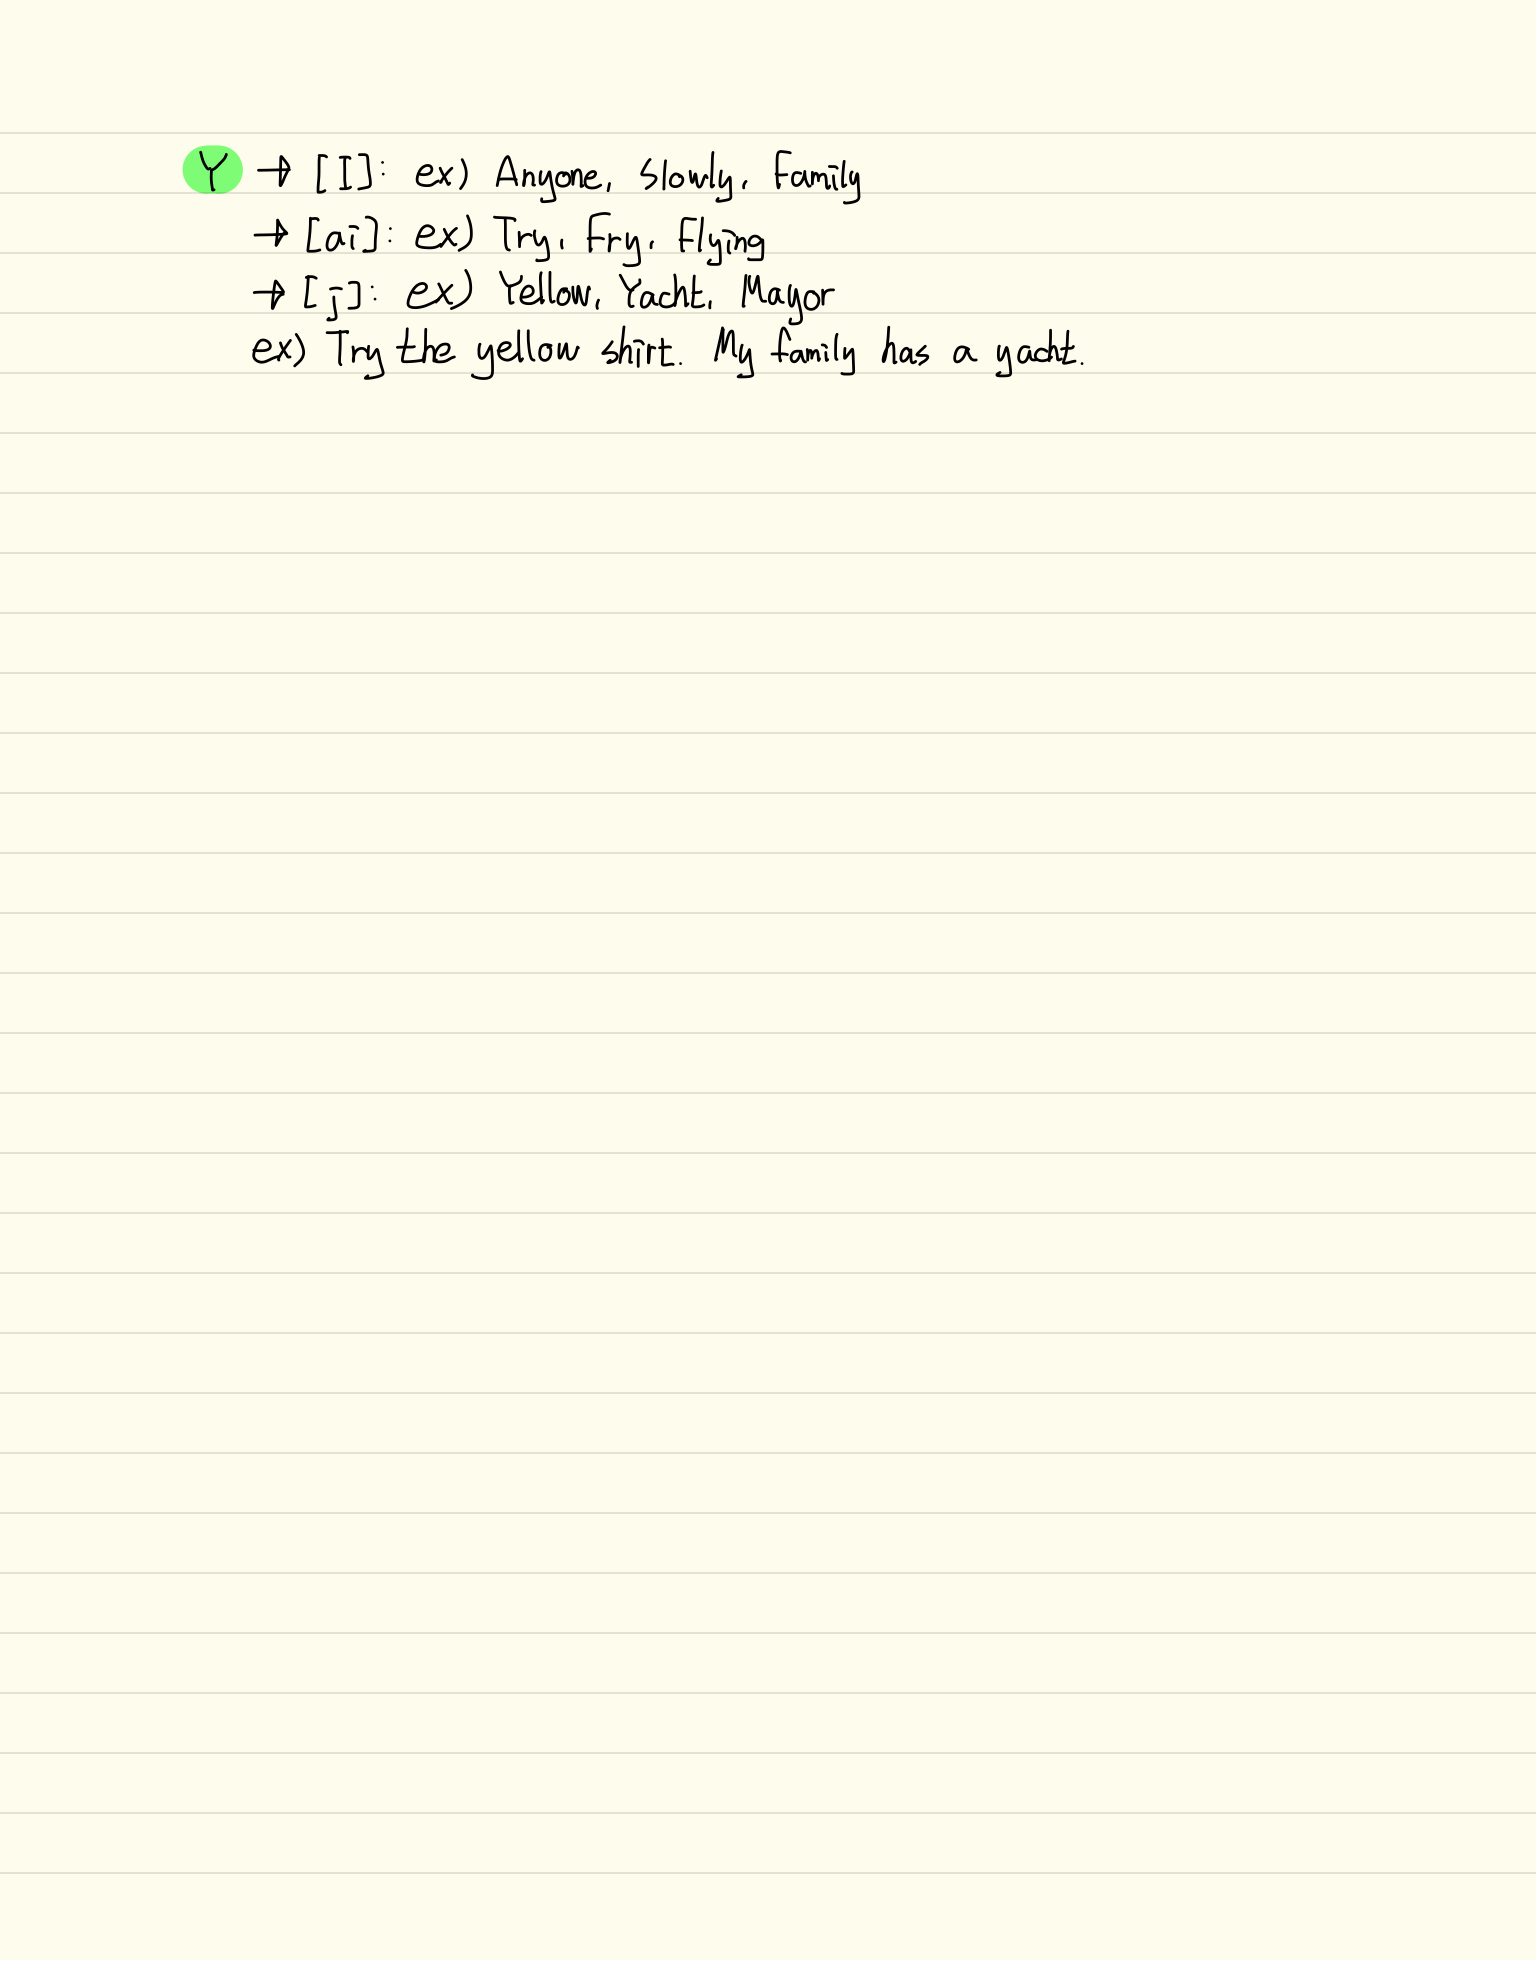 Y → [I]: ex) Anyone, Slowly, Family
→ [ai]: ex) Try, Fry, Flying
→ [j]: ex) Yellow, Yacht, Mayor
ex) Try the yellow shirt. My family has a yacht.